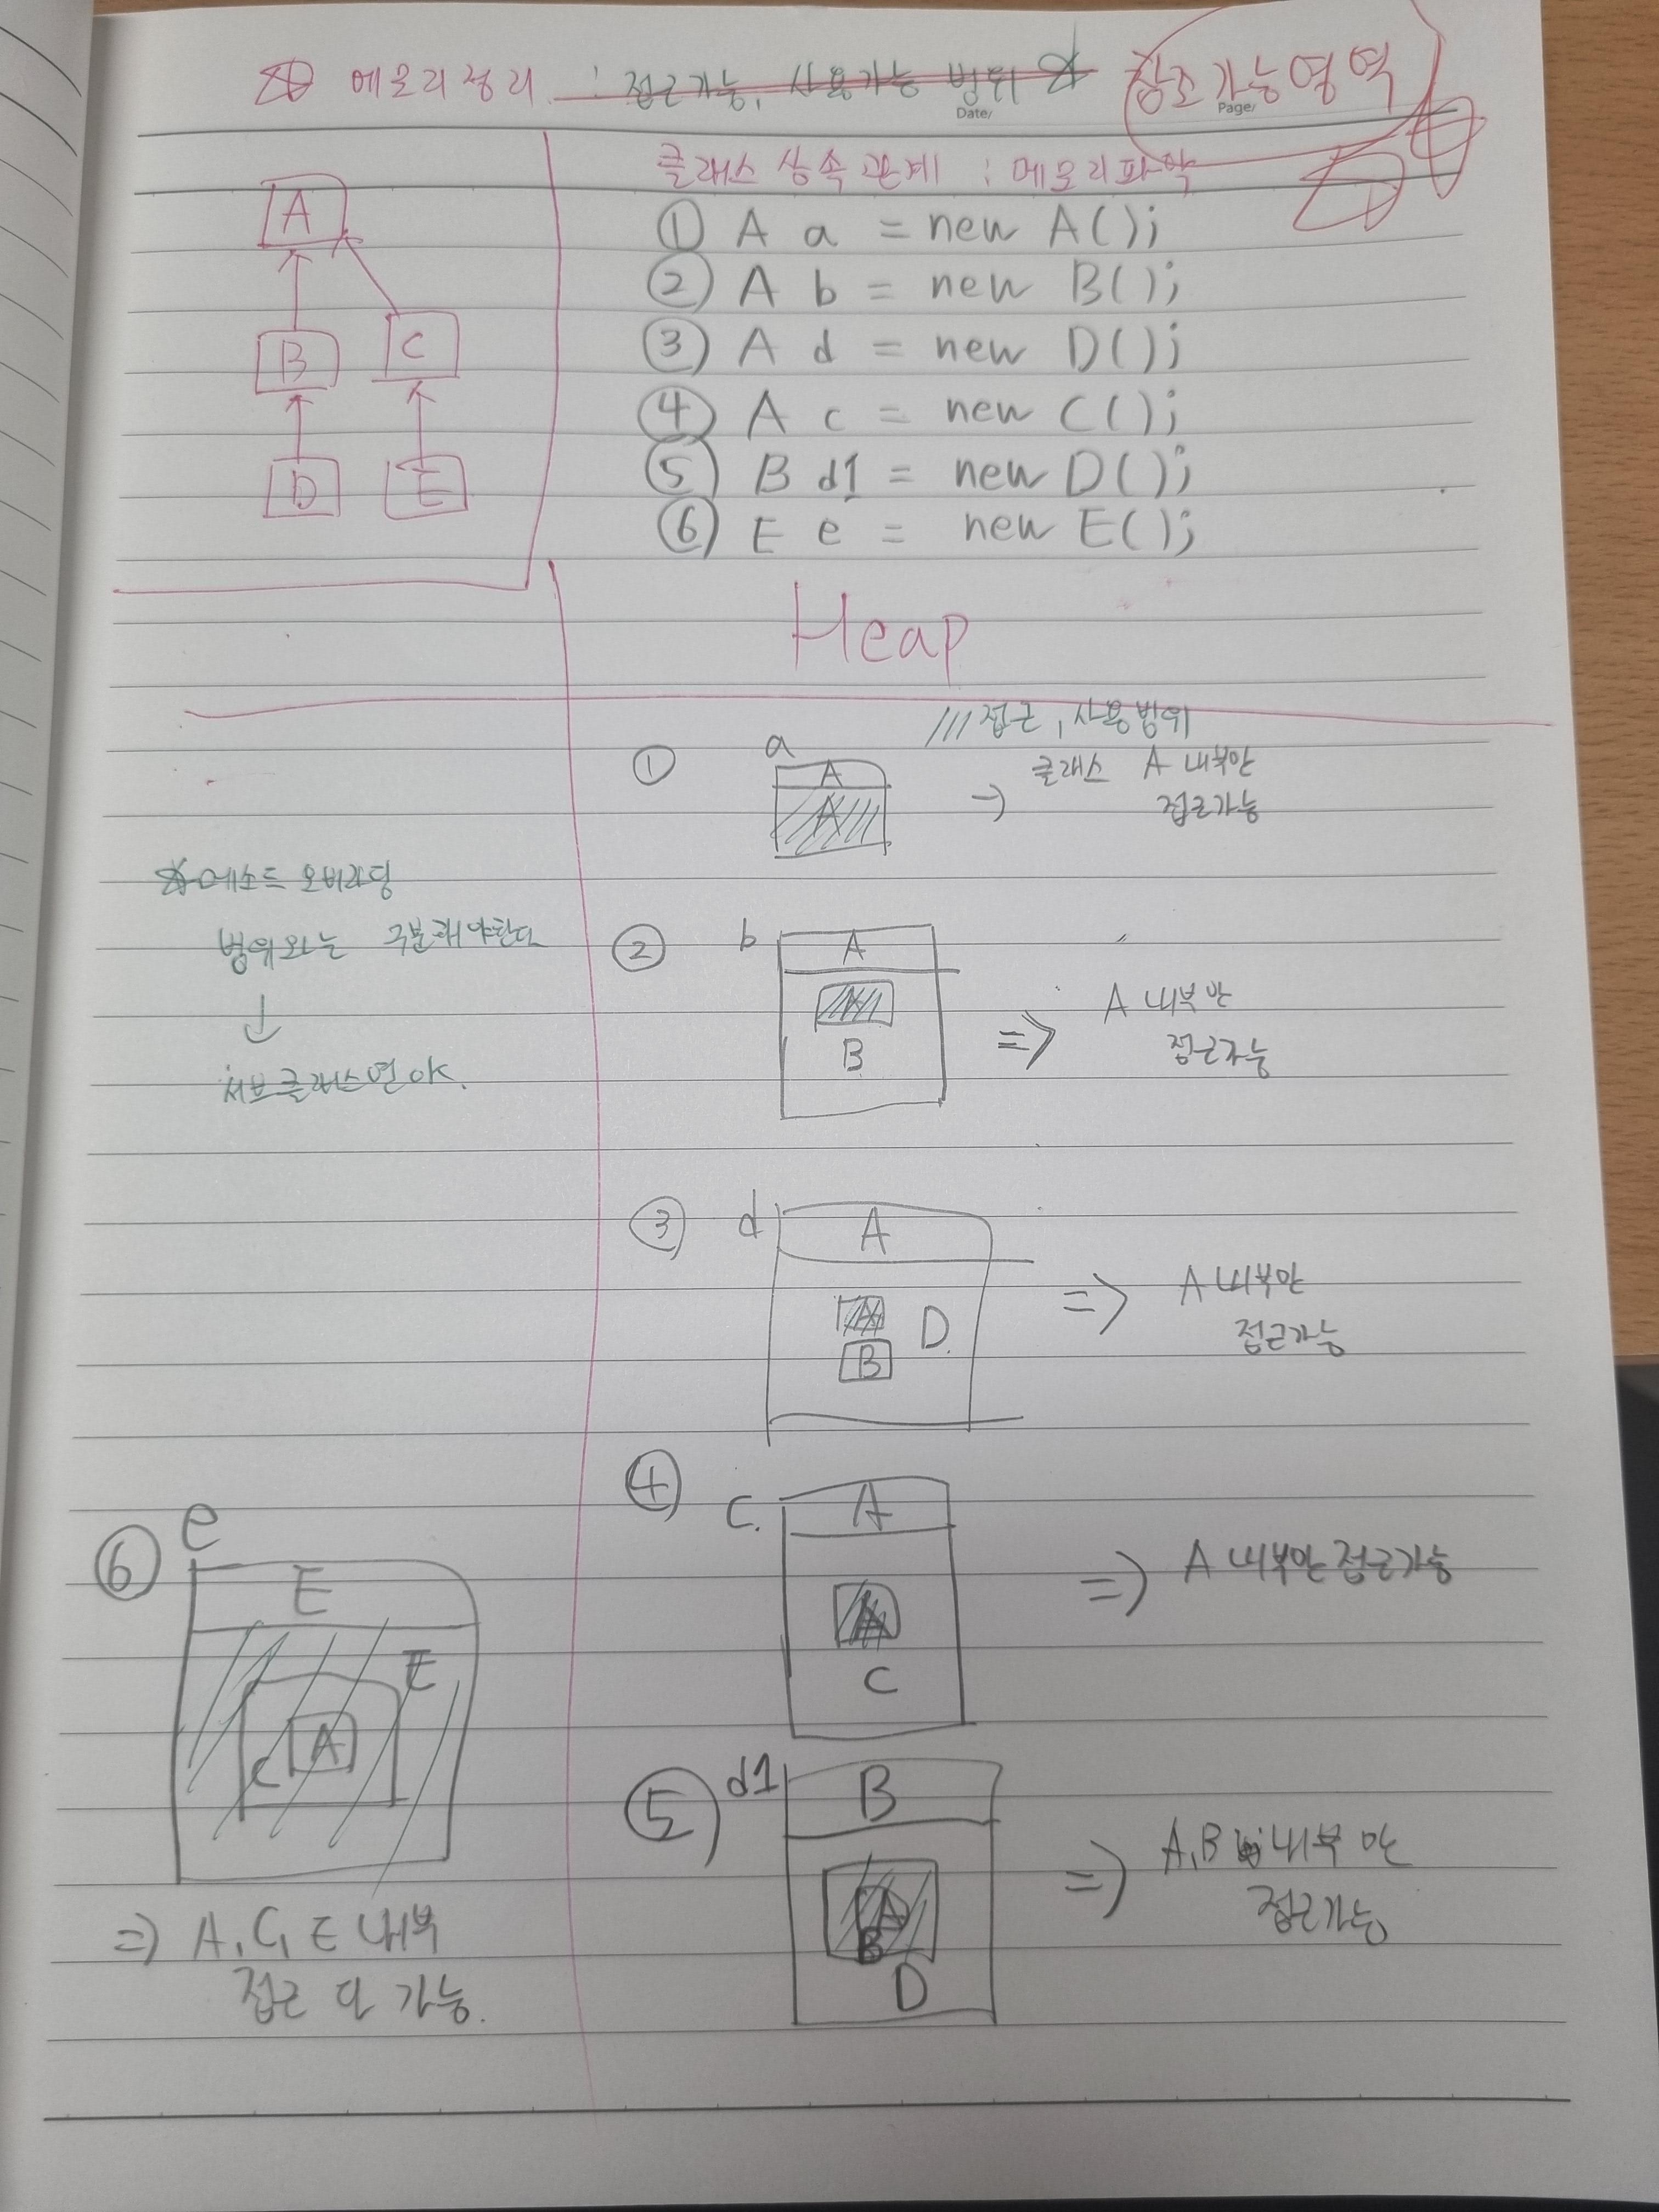 ☆ 메모리정리 : 접근가능, 사용가능 범위 ☆ 참조가능영역
Date/
Page/
A
B
C
D
E
클래스 상속관계 : 메모리파악
① A a = new A();
② A b = new B();
③ A d = new D();
④ A c = new C();
⑤ B d1 = new D();
⑥ E e = new E();
Heap
/// 접근, 사용범위
① a
A
A
→ 클래스 A 내부만
접근가능
☆ 메소드 오버라딩
범위와는 구분해야한다
↓
서브클래스면 OK.
② b
A
A
B
⇒ A 내부만
접근가능
③ d
A
A
B
D
⇒ A 내부만
접근가능
④ c.
A
A
C
⇒ A 내부만 접근가능
⑤ d1
B
A
B
D
⇒ A, B 내부만
접근가능
⑥ e
E
E
A
C
⇒ A, C, E 내부
접근 다 가능.